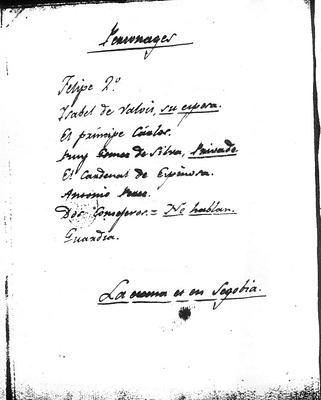 Personages
Felipe 2º
Isabel de Valois, su esposa.
El príncipe Cárlos.
Ruy Gomez de Silva, Privado
El Cardenal de Espinosa.
Antonio Perez.
Dos Consejeros = No hablan.
Guardia.
La escena es en Segobia.